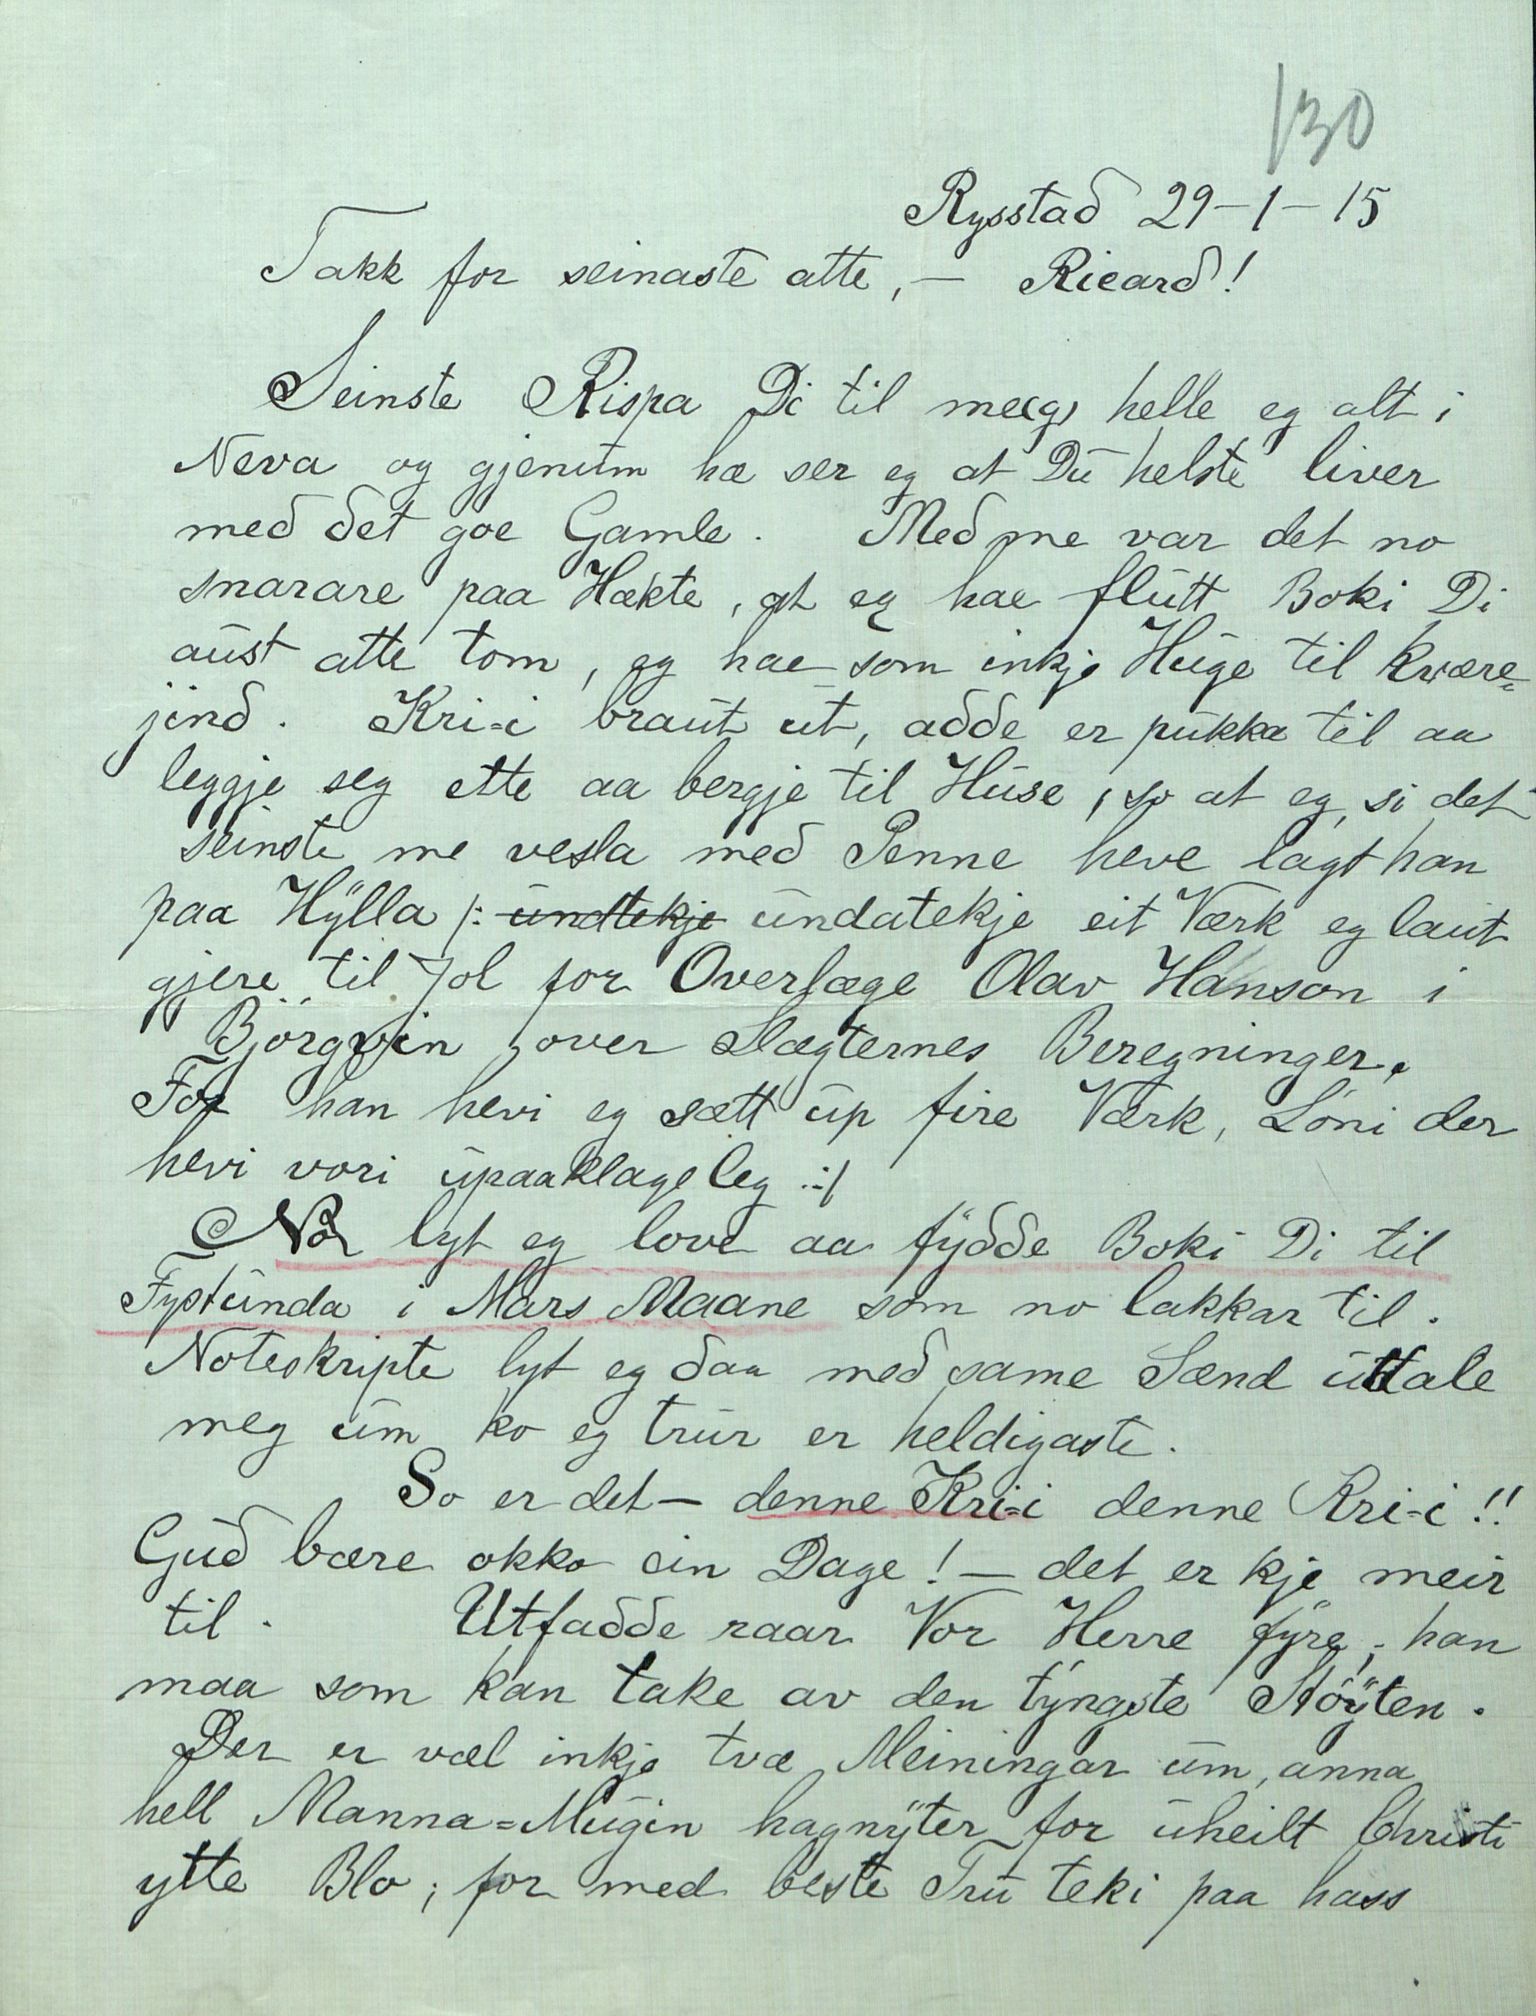 130
Rysstad 29-1-15
Takk for seinaste atte, — Ricard!
Seinste Rispa Di til me(g) helle eg alt i
Neva og gjenum hæ ser eg at Du helste liver
med det goe Gamle. Med me var det no
snarare paa Hækte, at eg hae flutt Boki Di
aust atte tom, eg hae som inkje Huge til kvære-
jind. Kri-i braut ut, adde er pukka til aa
leggje seg ette aa bergje til Huse, so at eg, si det
seinste me vesla med Penne heve lagt han
paa Hylla /: undtekje undatekje eit Værk eg laut
gjere til Jol for Overlæge Olav Hanson i
Björgvin over Slægternes Beregninger.
For han hevi eg sætt up fire Værk, Löni der
hevi vori upaaklageleg :/
No lyt eg love aa fydde Boki Di til
Fystunda i Mars Maane som no lakkar til.
Noteskripte lyt eg daa med same Sænd uttale
meg um ko eg trur er heldigaste.
So er det — denne Kri-i denne Kri-i!!
Gud bære okko ein Dage! — det er kje meir
til. Utfadde raar Vor Herre fyre, han
maa som kan take av den tyngste Støyten.
Der er væl inkje tvæ Meiningar um, anna
hell Manna-Mugin hagnyter for uheilt Christi
ytte Blo; for med beste Tru teki paa hass